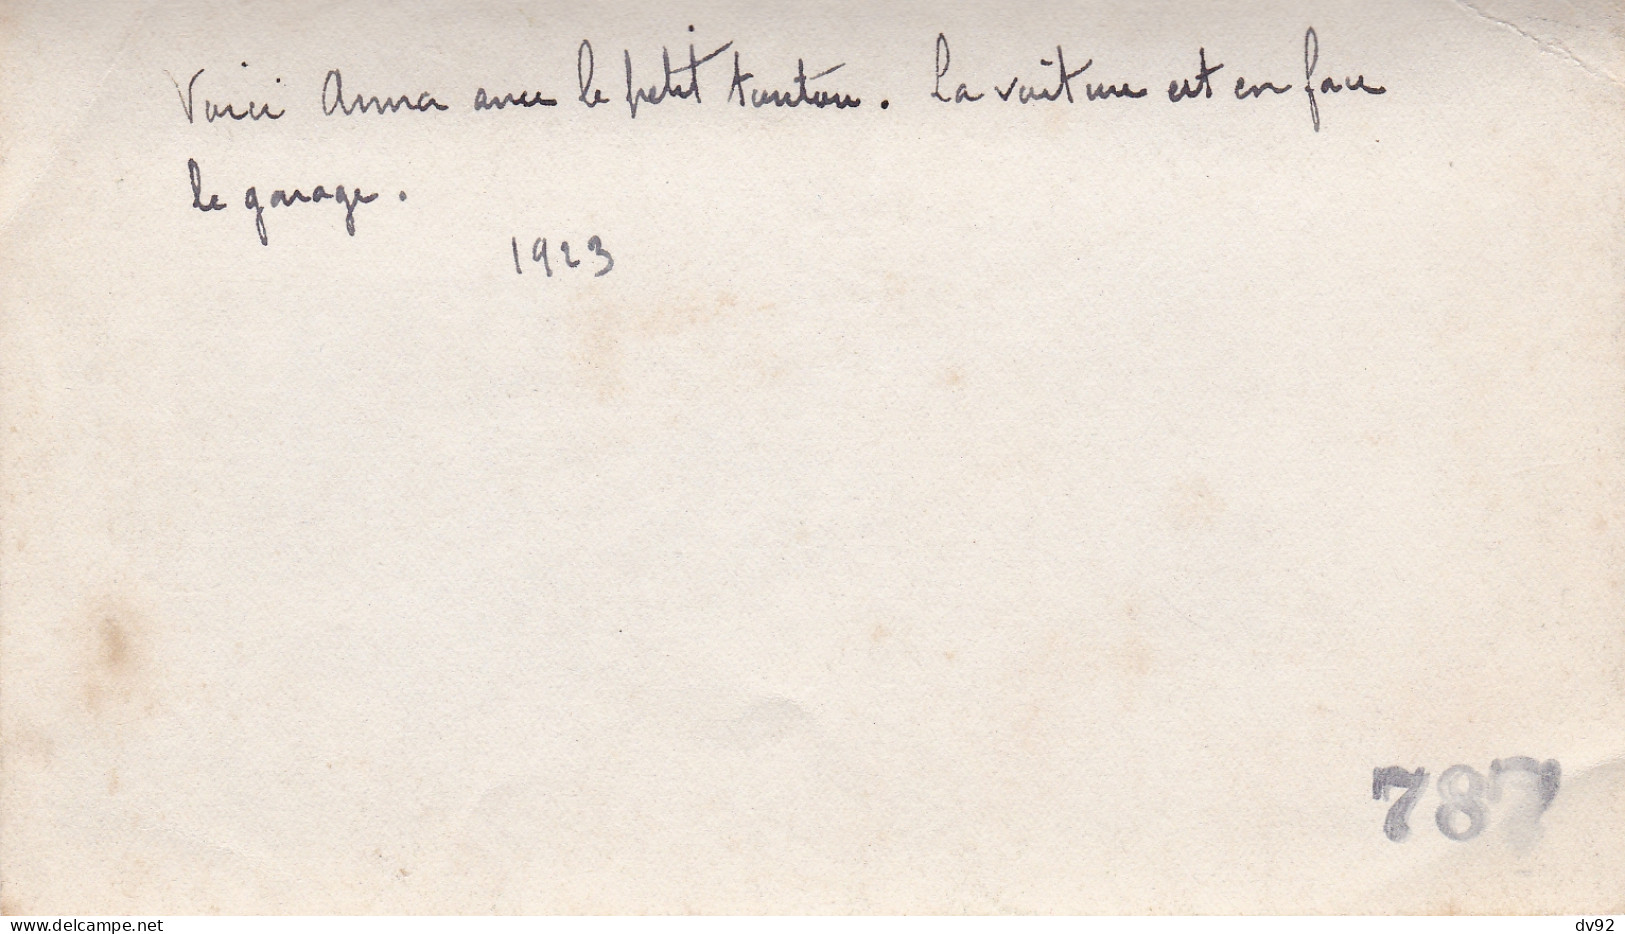 Voici Anna avec le petit tonton. La voiture est en face
le garage.
1923
787
www.delcampe.net
dv92